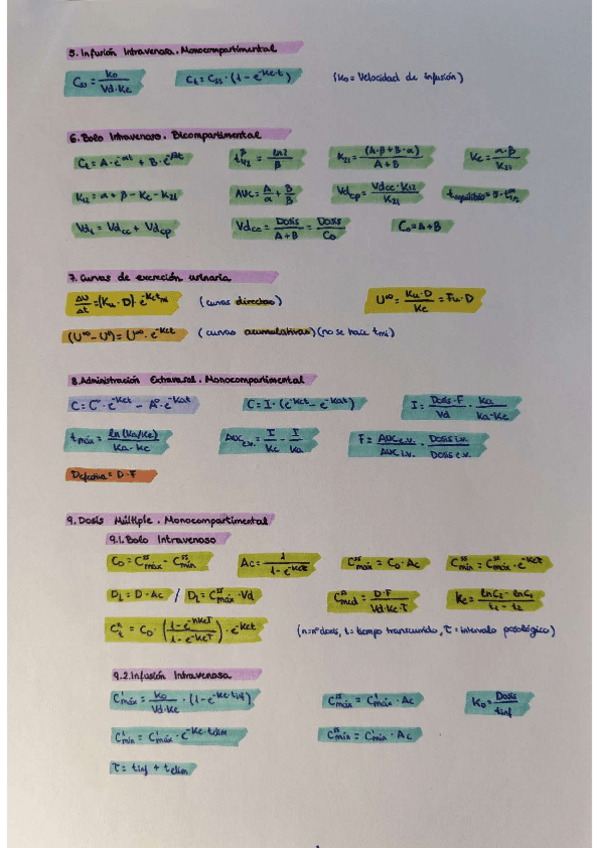 5. Infusión Intravenosa. Monocompartimental
C∞ = K₀ / Vd·Ke    Ct = Css · (1 − e^-Ke·t)    (K₀ = Velocidad de infusión)
6. Bolo Intravenoso. Bicompartimental
Ct = A · e^-αt + B · e^-βt    t^β 1/2 = ln2 / β    K21 = (A·β + B·α) / A+B    Ke = α·β / K21
K12 = α + β − Ke − K21    AUC = A/α + B/β    Vdcp = Vdcc · K12 / K21    tequilibrio = 5 · t^β 1/2
Vdt = Vdcc + Vdcp    Vdcc = Dosis / A+B = Dosis / C₀    C₀ = A+B
7. Curvas de excreción urinaria
ΔU/Δt = (Ku · D) · e^-Ke·tmi    (curvas directas)    U^∞ = Ku·D / Ke = Fu·D
(U^∞ − U^t) = U^∞ · e^-Ket    (curvas acumulativas) (no se hace tmi)
8. Administración Extravasal. Monocompartimental
C = C° · e^-Ket − A° · e^-Kat    C = I · (e^-Ket − e^-Kat)    I = Dosis·F / Vd · Ka / Ka−Ke
tmáx = ln(Ka/Ke) / Ka−Ke    AUC e.v. = I/Ke − I/Ka    F = AUC e.v. / AUC i.v. · Dosis i.v. / Dosis e.v.
Defectiva = D · F
9. Dosis Múltiple. Monocompartimental
9.1. Bolo Intravenoso
C₀ = C^ss máx − C^ss mín    Ac = 1 / 1 − e^-Keτ    C^ss máx = C₀ · Ac    C^ss mín = C^ss máx · e^-Keτ
DL = D · Ac / DL = C^ss máx · Vd    C^ss med = D·F / Vd·Ke·τ    Ke = lnC₂ − lnC₁ / t₁ − t₂
C^n t = C₀ · (1 − e^-nKeτ / 1 − e^-Keτ) · e^-Ket    (n = nº dosis, t = tiempo transcurrido, τ = intervalo posológico)
9.2. Infusión Intravenosa
C¹máx = K₀ / Vd·Ke · (1 − e^-Ke·tinf)    C^ss máx = C¹máx · Ac    K₀ = Dosis / tinf
C¹mín = C¹máx · e^-Ke·telim    C^ss mín = C¹mín · Ac
τ = tinf + telim